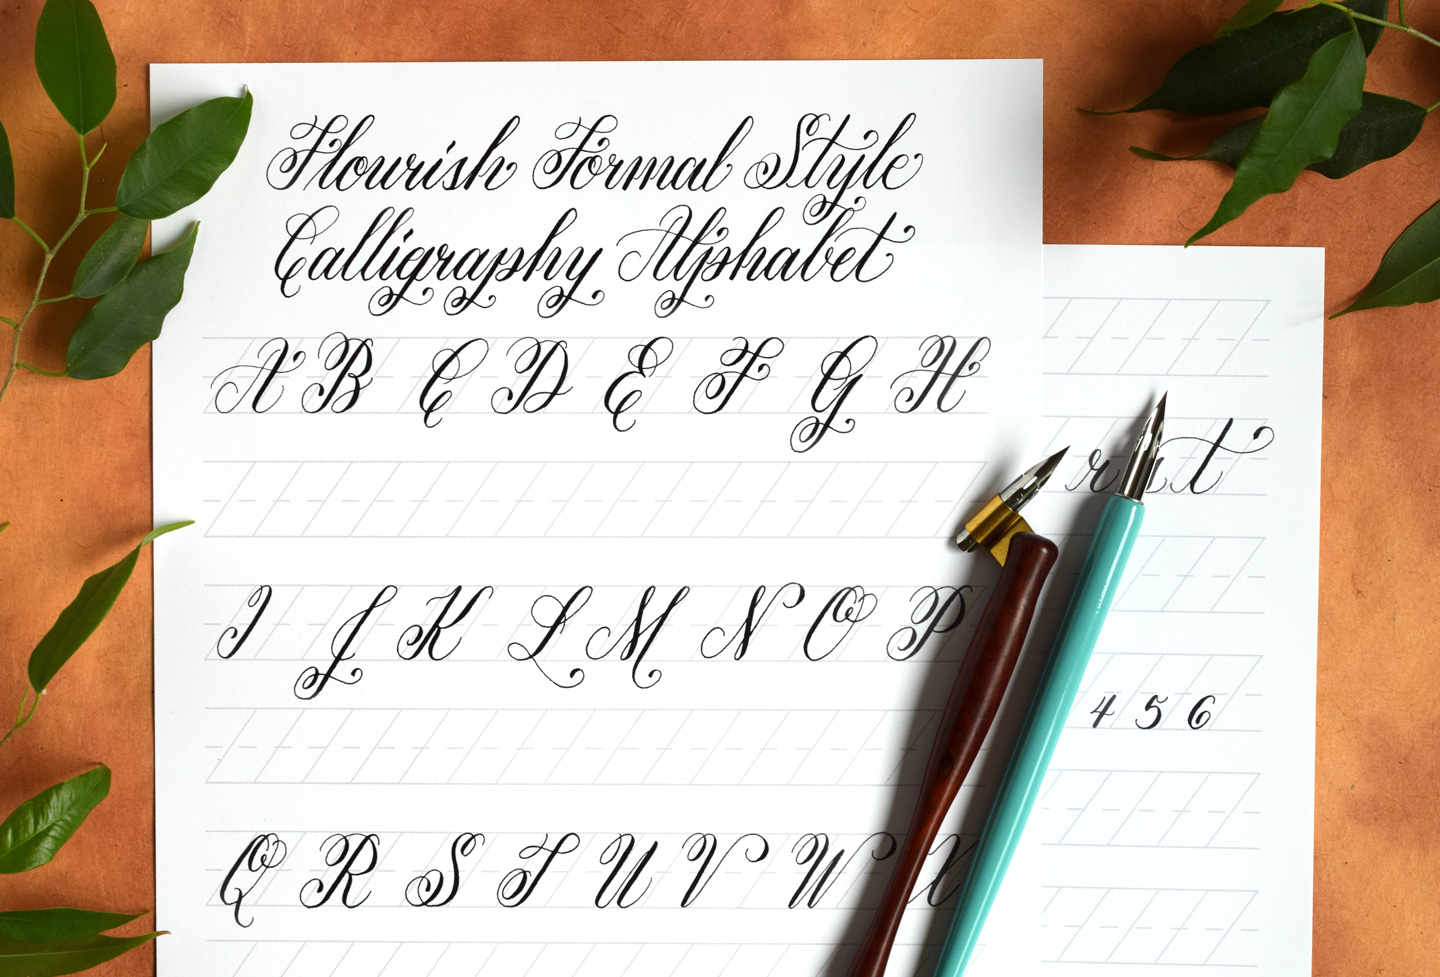 Flourish Formal Style
Calligraphy Alphabet
A B C D E F G H
I J K L M N O P
Q R S T U V W X
4 5 6